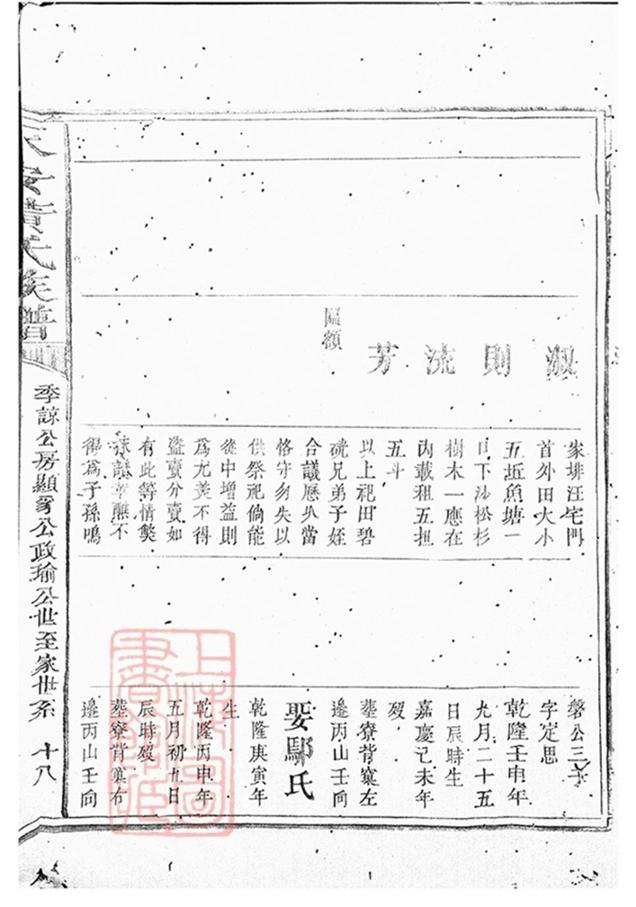 淑則流芳
匾額
家排汪宅門
首外田大小
五坵魚塘一
口下沙松杉
樹木一應在
內載租五担
五斗
以上祀田碧
硄兄弟子姪
合議歷久當
恪守勿失以
供祭祀倘能
從中增益則
為尤美不得
盜賣分賣如
有此等情獘
不
得為子孫鳴
磐公三子
字定思
乾隆壬申年
九月二十五
日辰時生
嘉慶己未年
歿
葬寮背窠左
邊丙山壬向
娶鄢氏
乾隆庚寅年
生
乾隆丙申年
五月初九日
辰時歿
葬寮背窠右
邊丙山壬向
黃氏族譜
季諒公房顯公政瑜公世至家世系 十八
上海圖書館藏